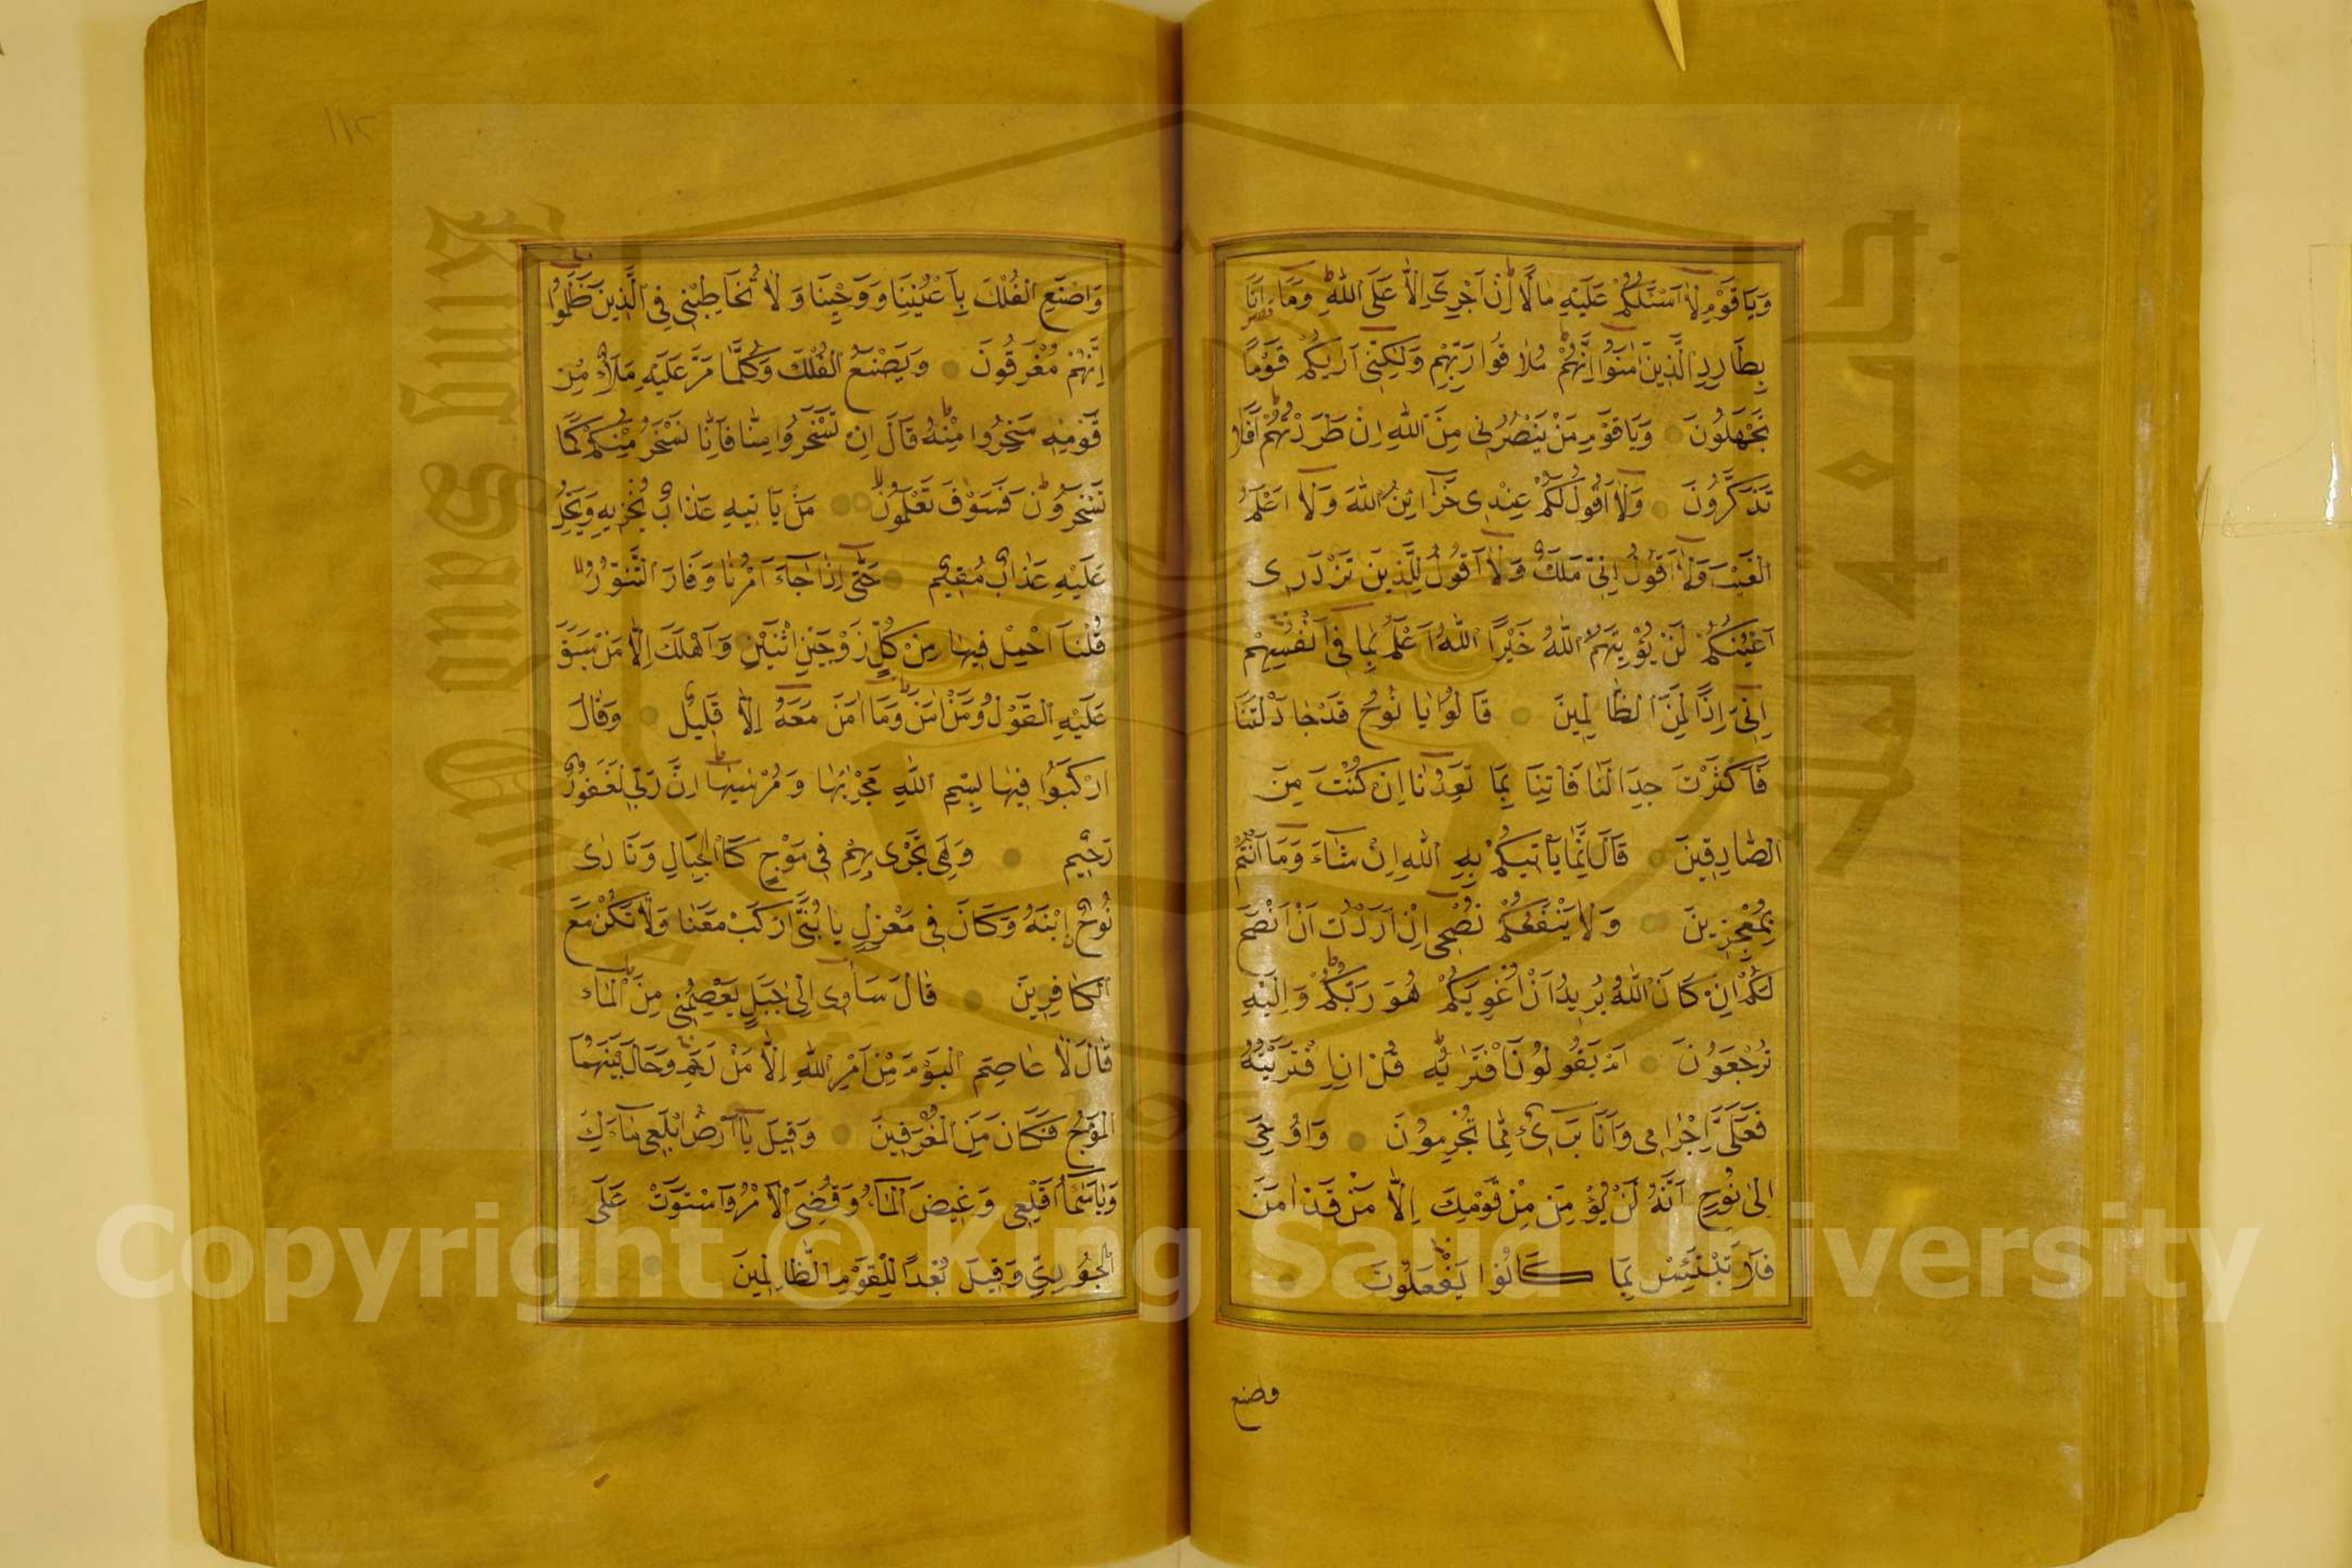 وَيَا قَوْمِ لَا أَسْئَلُكُمْ عَلَيْهِ مَالًا إِنْ أَجْرِيَ إِلَّا عَلَى اللَّهِ وَمَا أَنَا
بِطَارِدِ الَّذِينَ آمَنُوا إِنَّهُمْ مُلَاقُوا رَبِّهِمْ وَلَكِنِّي أَرَيكُمْ قَوْمًا
تَجْهَلُونَ وَيَا قَوْمِ مَنْ يَنْصُرُنِي مِنَ اللَّهِ إِنْ طَرَدْتُهُمْ أَفَلَا
تَذَكَّرُونَ وَلَا أَقُولُ لَكُمْ عِنْدِي خَزَائِنُ اللَّهِ وَلَا أَعْلَمُ
الْغَيْبَ وَلَا أَقُولُ إِنِّي مَلَكٌ وَلَا أَقُولُ لِلَّذِينَ تَزْدَرِي
أَعْيُنُكُمْ لَنْ يُؤْتِيَهُمُ اللَّهُ خَيْرًا اللَّهُ أَعْلَمُ بِمَا فِي أَنْفُسِهِمْ
إِنِّي إِذًا لَمِنَ الظَّالِمِينَ قَالُوا يَا نُوحُ قَدْ جَادَلْتَنَا
فَأَكْثَرْتَ جِدَالَنَا فَاتِنَا بِمَا تَعِدُنَا إِنْ كُنْتَ مِنَ
الصَّادِقِينَ قَالَ إِنَّمَا يَأْتِيكُمْ بِهِ اللَّهُ إِنْ شَاءَ وَمَا أَنْتُمْ
بِمُعْجِزِينَ وَلَا يَنْفَعُكُمْ نُصْحِي إِنْ أَرَدْتُ أَنْ أَنْصَحَ
لَكُمْ إِنْ كَانَ اللَّهُ يُرِيدُ أَنْ يُغْوِيَكُمْ هُوَ رَبُّكُمْ وَإِلَيْهِ
تُرْجَعُونَ أَمْ يَقُولُونَ افْتَرَيهُ قُلْ إِنِ افْتَرَيْتُهُ
فَعَلَيَّ إِجْرَامِي وَأَنَا بَرِيءٌ مِمَّا تُجْرِمُونَ وَأُوحِيَ
إِلَى نُوحٍ أَنَّهُ لَنْ يُؤْمِنَ مِنْ قَوْمِكَ إِلَّا مَنْ قَدْ آمَنَ
فَلَا تَبْتَئِسْ بِمَا كَانُوا يَفْعَلُونَ
وصنع
١١٢
وَاصْنَعِ الْفُلْكَ بِأَعْيُنِنَا وَوَحْيِنَا وَلَا تُخَاطِبْنِي فِي الَّذِينَ ظَلَمُوا
إِنَّهُمْ مُغْرَقُونَ وَيَصْنَعُ الْفُلْكَ وَكُلَّمَا مَرَّ عَلَيْهِ مَلَأٌ مِنْ
قَوْمِهِ سَخِرُوا مِنْهُ قَالَ إِنْ تَسْخَرُوا مِنَّا فَإِنَّا نَسْخَرُ مِنْكُمْ كَمَا
تَسْخَرُونَ فَسَوْفَ تَعْلَمُونَ مَنْ يَأْتِيهِ عَذَابٌ يُخْزِيهِ وَيَحِلُّ
عَلَيْهِ عَذَابٌ مُقِيمٌ حَتَّى إِذَا جَاءَ أَمْرُنَا وَفَارَ التَّنُّورُ
قُلْنَا احْمِلْ فِيهَا مِنْ كُلٍّ زَوْجَيْنِ اثْنَيْنِ وَأَهْلَكَ إِلَّا مَنْ سَبَقَ
عَلَيْهِ الْقَوْلُ وَمَنْ آمَنَ وَمَا آمَنَ مَعَهُ إِلَّا قَلِيلٌ وَقَالَ
ارْكَبُوا فِيهَا بِسْمِ اللَّهِ مَجْرَيهَا وَمُرْسَيهَا إِنَّ رَبِّي لَغَفُورٌ
رَحِيمٌ وَهِيَ تَجْرِي بِهِمْ فِي مَوْجٍ كَالْجِبَالِ وَنَادَى
نُوحٌ ابْنَهُ وَكَانَ فِي مَعْزِلٍ يَا بُنَيَّ ارْكَبْ مَعَنَا وَلَا تَكُنْ مَعَ
الْكَافِرِينَ قَالَ سَآوِي إِلَى جَبَلٍ يَعْصِمُنِي مِنَ الْمَاءِ
قَالَ لَا عَاصِمَ الْيَوْمَ مِنْ أَمْرِ اللَّهِ إِلَّا مَنْ رَحِمَ وَحَالَ بَيْنَهُمَا
الْمَوْجُ فَكَانَ مِنَ الْمُغْرَقِينَ وَقِيلَ يَا أَرْضُ ابْلَعِي مَاءَكِ
وَيَا سَمَاءُ أَقْلِعِي وَغِيضَ الْمَاءُ وَقُضِيَ الْأَمْرُ وَاسْتَوَتْ عَلَى
الْجُودِيِّ وَقِيلَ بُعْدًا لِلْقَوْمِ الظَّالِمِينَ
Copyright © King Saud University